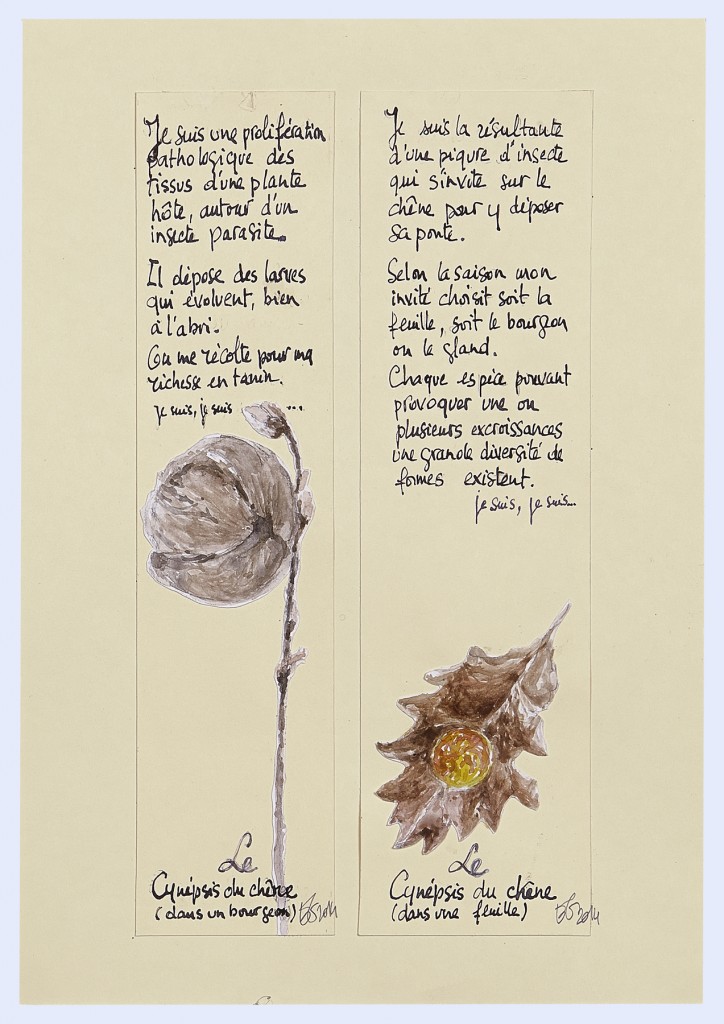 Je suis une prolifération
pathologique des
tissus d'une plante
hôte, autour d'un
insecte parasite.
Il dépose des larves
qui évoluent, bien
à l'abri.
On me récolte pour ma
richesse en tanin.
je suis, je suis ...
Le
Cynépsis du chêne
(dans un bourgeon)
2014
Je suis la résultante
d'une piqure d'insecte
qui s'invite sur le
chêne pour y déposer
sa ponte.
Selon la saison mon
invité choisit soit la
feuille, soit le bourgeon
ou le gland.
Chaque espèce pouvant
provoquer une ou
plusieurs excroissances
une grande diversité de
formes existent.
je suis, je suis...
Le
Cynépsis du chêne
(dans une feuille)
2014